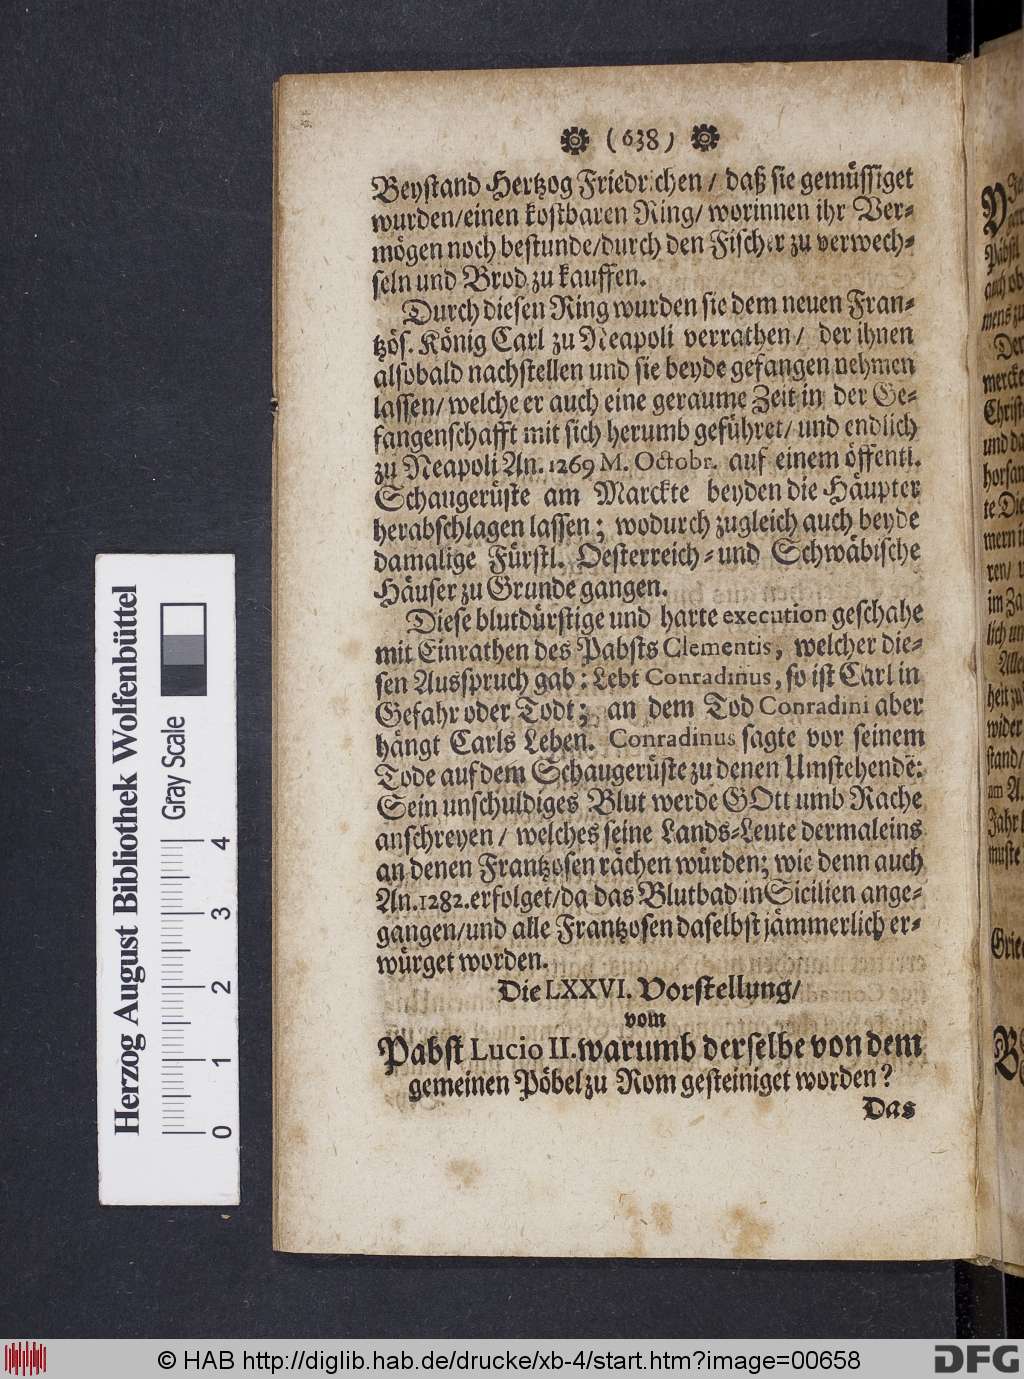 (638)
Beystand Hertzog Friedrichen / daß sie gemüssiget
wurden/einen kostbaren Ring/ worinnen ihr Ver-
mögen noch bestunde/durch den Fischer zu verwech-
seln und Brod zu kauffen.
Durch diesen Ring wurden sie dem neuen Fran-
tzös. König Carl zu Neapoli verrathen/ der ihnen
alsobald nachstellen und sie beyde gefangen nehmen
lassen/ welche er auch eine geraume Zeit in der Ge-
fangenschafft mit sich herumb geführet/ und endlich
zu Neapoli An. 1269 M. Octobr. auf einem öffentl.
Schaugerüste am Marckte beyden die Häupter
herabschlagen lassen; wodurch zugleich auch beyde
damalige Fürstl. Oesterreich- und Schwäbische
Häuser zu Grunde gangen.
Diese blutdürstige und harte execution geschahe
mit Einrathen des Pabsts Clementis, welcher die-
sen Ausspruch gab: Lebt Conradinus, so ist Carl in
Gefahr oder Todt; an dem Tod Conradini aber
hängt Carls Leben. Conradinus sagte vor seinem
Tode auf dem Schaugerüste zu denen Umstehendē:
Sein unschuldiges Blut werde GOtt umb Rache
anschreyen/ welches seine Lands-Leute dermaleins
an denen Frantzosen rächen würden; wie denn auch
An. 1282. erfolget/da das Blutbad in Sicilien ange-
gangen/und alle Frantzosen daselbst jämmerlich er-
würget worden.
Die LXXVI. Vorstellung/
vom
Pabst Lucio II. warumb derselbe von dem
gemeinen Pöbel zu Rom gesteiniget worden?
Das
Herzog August Bibliothek Wolfenbüttel
Gray Scale
0 1 2 3 4
© HAB http://diglib.hab.de/drucke/xb-4/start.htm?image=00658
DFG